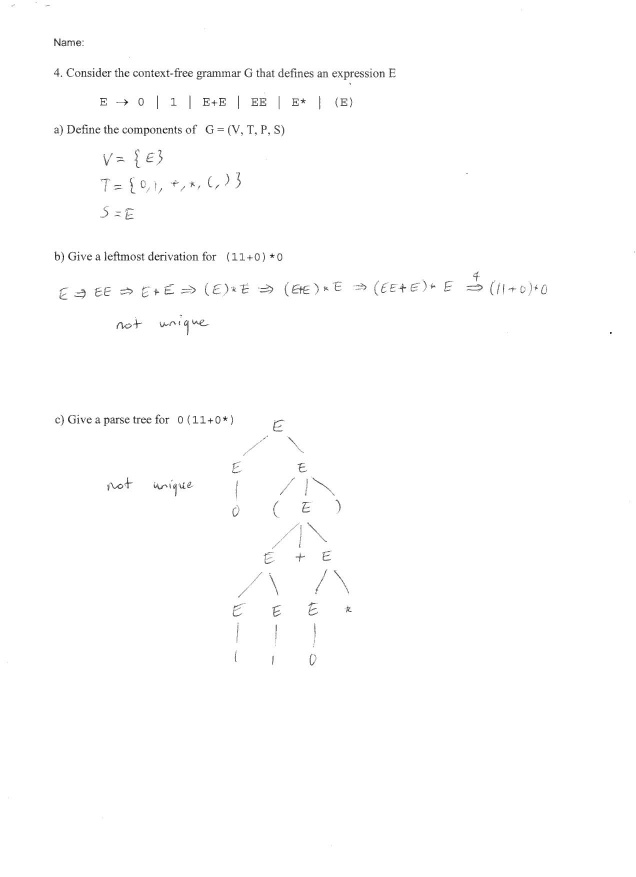 Name:
4. Consider the context-free grammar G that defines an expression E
E → 0 | 1 | E+E | EE | E* | (E)
a) Define the components of G = (V, T, P, S)
V = {E}
T = {0,1, +,*, (,)}
S = E
b) Give a leftmost derivation for (11+0)*0
E ⇒ EE ⇒ E*E ⇒ (E)*E ⇒ (E+E)*E ⇒ (EE+E)*E ⇒4 (11+0)*0
not unique
c) Give a parse tree for 0(11+0*)
E
E E
not unique
0 ( E )
E + E
E E E *
1 1 0